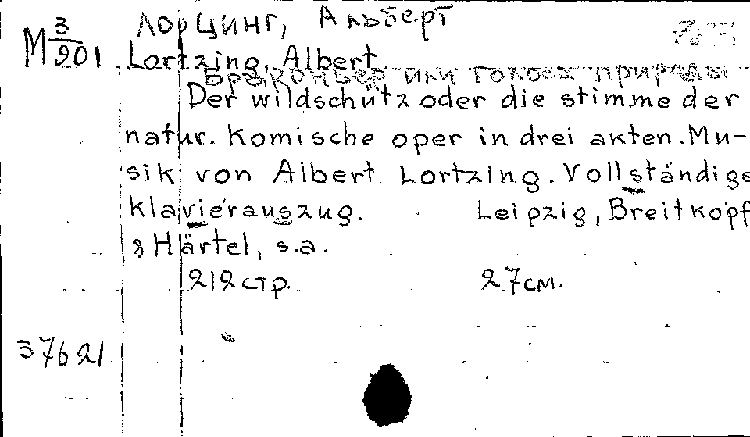 Лорцинг, Альберт
М 3/201 Lortzing, Albert
Браконьер или голос природы
Der wildschütz oder die stimme der
natur. Komische oper in drei akten. Mu-
sik von Albert Lortzing. Vollständige
klavierauszug. Leipzig, Breitkopf
& Härtel, s.a.
212 стр. 27 см.
37621